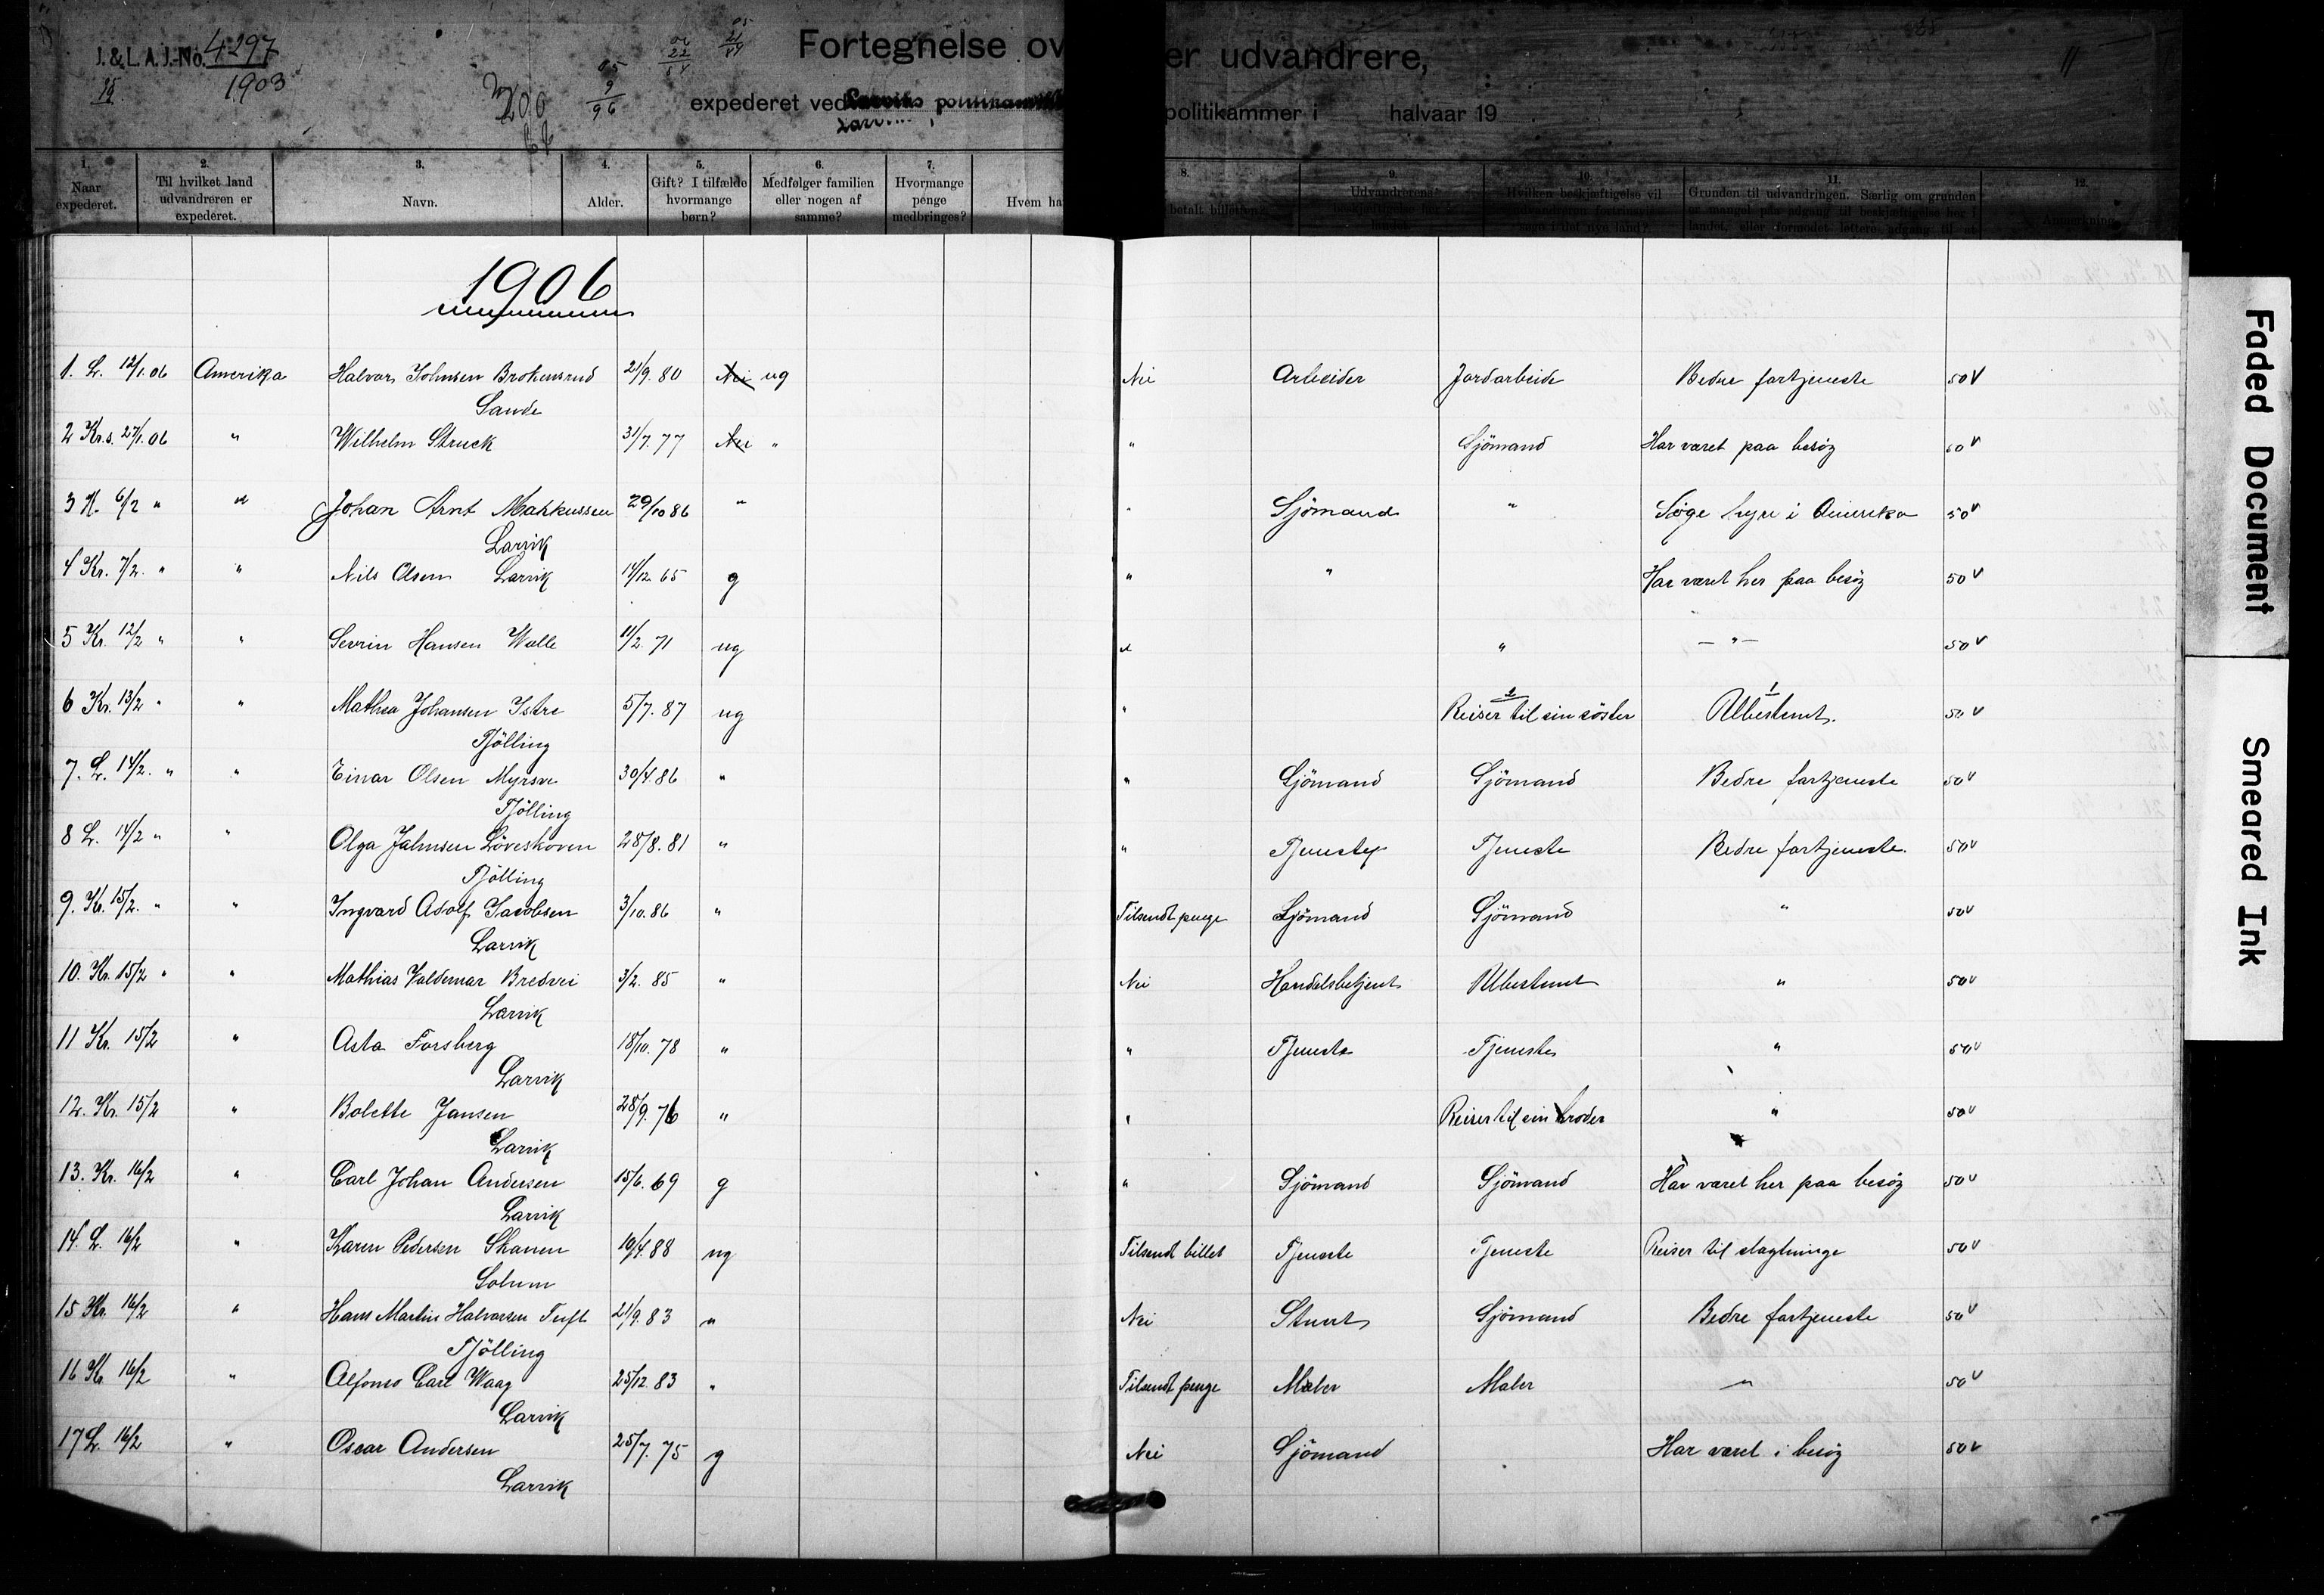 J. & L. A. J.-No. 4297
1903
Fortegnelse over udvandrere,
expederet ved Larviks politikammer i halvaar 19
1. Naar expederet.
2. Til hvilket land udvandreren er expederet.
3. Navn.
4. Alder.
5. Gift? I tilfælde hvormange børn?
6. Medfølger familien eller nogen af samme?
7. Hvormange penge medbringes?
8. Hvem ha betalt billetten
9. Udvandrerens
10. Hvilken beskjæftigelse vil
11. Grunden til udvandringen. Særlig om grunden
12. Anmerkning.
1906
1. L. 12/1.06 Amerika Halvor Johnsen Brokensrud 21/9.80 Nei ug Nei Arbeider Jordarbeide Bedre fortjeneste 50 V
Sande
2 Krs. 27/1.06 " Wilhelm Struck 31/7.77 Nei " " Sjömand Har været paa besög 50 V
3 K. 6/2 " " Johan Arnt Markussen 29/10 86 " " Sjömand " Söge hyre i Amerika 50 V
Larvik
4 Kr. 7/2. " " Nils Olsen Larvik 14/12.65 g " " Har været her paa besög 50 V
5 Kr. 12/2 " " Sevrin Hansen Walle 11/2.71 ug " " — " — 50 V
6 Kr. 13/2 " " Mathea Johansen Istre 5/7.87 ug " Reiser til sin söster Ubestemt. 50 V
Tjölling
7. L. 14/2. " " Einar Olsen Myrsve 30/4.86 " " Sjömand Sjömand Bedre fortjeneste 50 V
Tjölling
8 L. 14/2 " " Olga Jahnsen Löveskoven 28/8.81 " " Tjeneste Tjeneste Bedre fortjeneste. 50 V
Tjölling
9. Kr. 15/2. " " Ingvard Adolf Jacobsen 3/10.86 " Tilsendt penge Sjömand Sjömand " 50 V
Larvik
10. Kr. 15/2 " " Mathias Valdemar Bredvei 3/2.85 " Nei Handelsbetjent Ubestemt " 50 V
Larvik
11 Kr. 15/2 " Asta Forsberg 18/10.78 " " Tjeneste Tjeneste " 50 V
Larvik
12. Kr. 15/2 " Bolette Jansen 28/9.76 " " Reiser til sin broder " 50 V
Larvik
13. Kr. 16/2 " Carl Johan Andersen 15/6.69 g " Sjömand Sjömand Har været her paa besög 50 V
Larvik
14. L. 16/2 " Karen Pedersen Skauen 10/4.88 ug Tilsendt billet Tjeneste Tjeneste Reiser til slægtninge 50 V
Solum
15 Kr. 16/2 " Hans Martin Halvorsen Tuft 21/9.83 " Nei Stuert Sjömand Bedre fortjeneste 50 V
Tjölling
16 Kr 16/2 " Alfonso Carl Waag 25/12.83 " Tilsendt penge Maler Maler " 50 V
Larvik
17 L. 16/2 " Oscar Andersen 25/7.75 g Nei Sjömand Har været i besög 50 V
Larvik
Faded Document
Smeared Ink